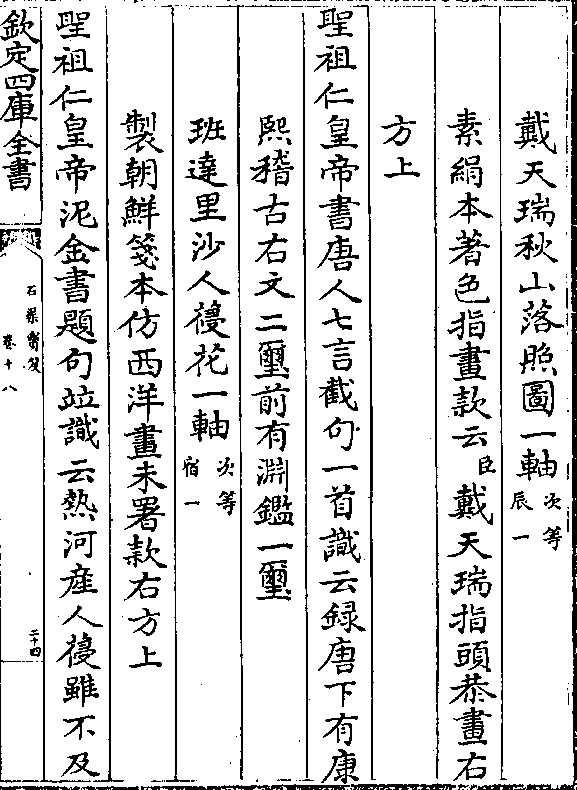 戴天瑞秋山落照圖一軸次等辰一
素絹本著色指畫款云臣戴天瑞指頭恭畫右
方上
聖祖仁皇帝書唐人七言截句一首識云録唐下有康
熙稽古右文二璽前有淵鑑一璽
班達里沙人蓡花一軸次等宿一
製朝鮮箋本仿西洋畫未署款右方上
聖祖仁皇帝泥金書題句竝識云熱河產人蓡雖不及
欽定四庫全書
石渠寶笈
卷十八
二十四